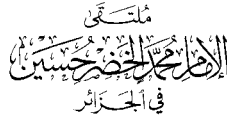 مُلتَقَى
الإِمَامِ مُحَمَّد الخَضِر حُسَين
فِي الجَزَائِر